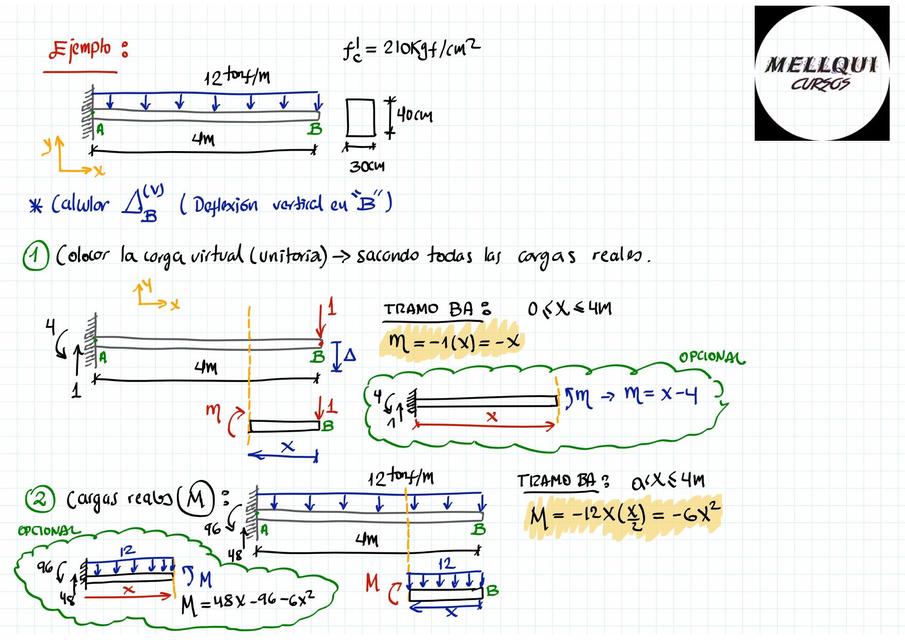 Ejemplo :
f'c = 210Kgf/cm²
MELLQUI
CURSOS
12 tonf/m
A
B
4m
40cm
30cm
y
x
* Calculor Δ_B^(V) ( Deflexión vertical en "B" )
① Colocor la corga virtual (unitoria) → sacondo todas las corgas reales.
y
x
4
1
A
B
1
Δ
4m
m
1
B
x
TRAMO BA : 0 ≤ x ≤ 4m
m = -1(x) = -x
OPCIONAL
4
1
x
m → m = x-4
② Cargas reales (M) :
12 tonf/m
96
48
A
B
4m
M
12
B
x
TRAMO BA : 0≤x≤4m
M = -12x(x/2) = -6x²
OPCIONAL
12
96
48
x
M
M = 48x - 96 - 6x²